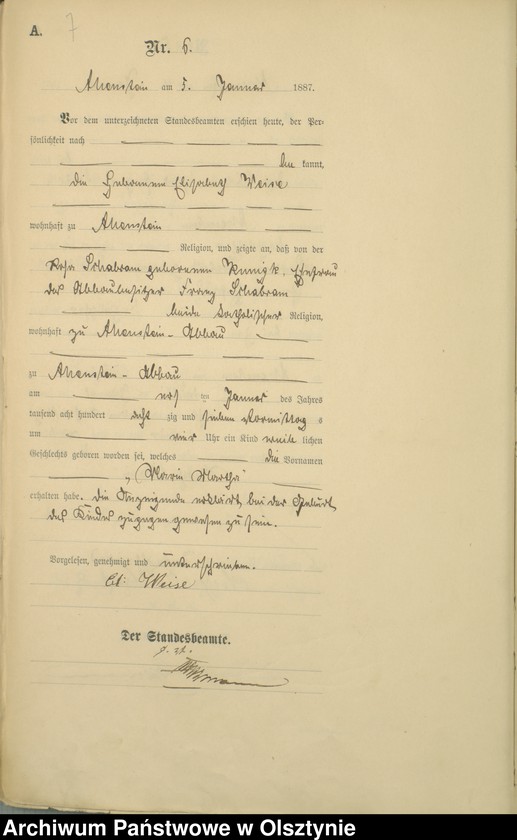 A. 7
Nr. 6.
Allenstein am 5. Januar 1887.
Vor dem unterzeichneten Standesbeamten erschien heute, der Per-
sönlichkeit nach
be kannt,
die Hebamme Elisabeth Weise
wohnhaft zu Allenstein
Religion, und zeigte an, daß von der
Rosa Schabram geborenen Kunigk, Ehefrau
des Abbaubesitzer Franz Schabram
beide katholischer Religion,
wohnhaft zu Allenstein-Abbau
zu Allenstein-Abbau
am ten Januar des Jahres
tausend acht hundert acht zig und sieben Vormittags
um vier Uhr ein Kind weib lichen
Geschlechts geboren worden sei, welches die Vornamen
„Maria Martha"
erhalten habe. Die Anzeigende erklärt, bei der Geburt
des Kindes zugegen gewesen zu sein.
Vorgelesen, genehmigt und unterschrieben.
El: Weise
Der Standesbeamte.
Archiwum Państwowe w Olsztynie